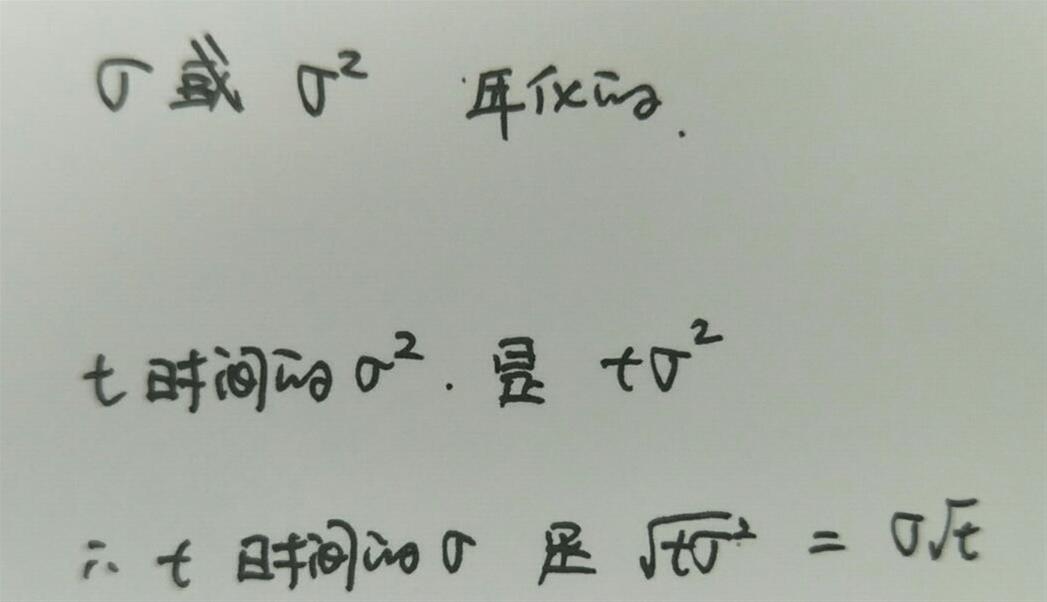 σ或 σ² 年化的.
t时间的σ². 是 tσ²
∴ t 时间的σ 是 √tσ² = σ√t